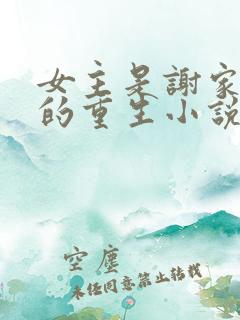 女主是謝家
的重生小說
空塵
未經同意禁止轉載